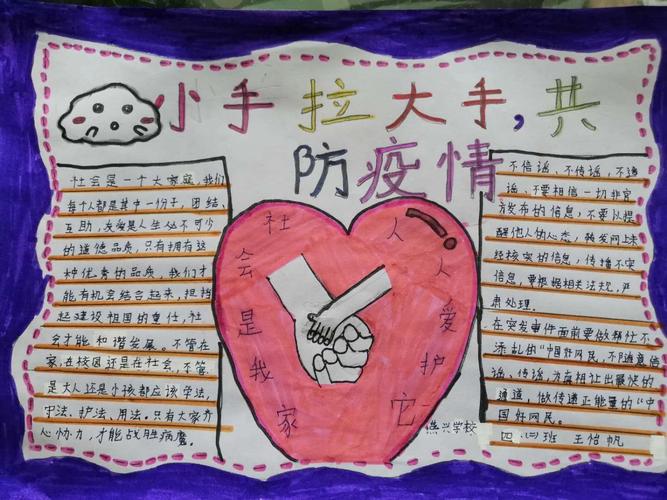 小手拉大手,共
防疫情
社会是一个大家庭,我们
每个人都是其中一份子,团结、
互助、友爱是人生必不可少
的道德品质,只有拥有这
种优秀的品质,我们才
能有机会结合起来,担当
起建设祖国的重任,社
会才能和谐发展。不管在
家,在校园还是在社会,不管
是大人还是小孩都应该学法、
守法、护法、用法。只有大家齐
心协力,才能战胜病魔。
社会是我家
人人爱护它
不信谣、不传谣,不造
谣、不要相信一切非官
方发布的信息,不要以提
醒他人的心态,转发网上未
经核实的信息,传播不实
信息,要根据相关法规,严
肃处理.
在突发事件面前要做帮忙不
添乱的"中国好网民,不随意信
谣、传谣,为真相让出最快的
通道,做传递正能量的"中
国好网民。
兴学校
四、四班 王怡帆